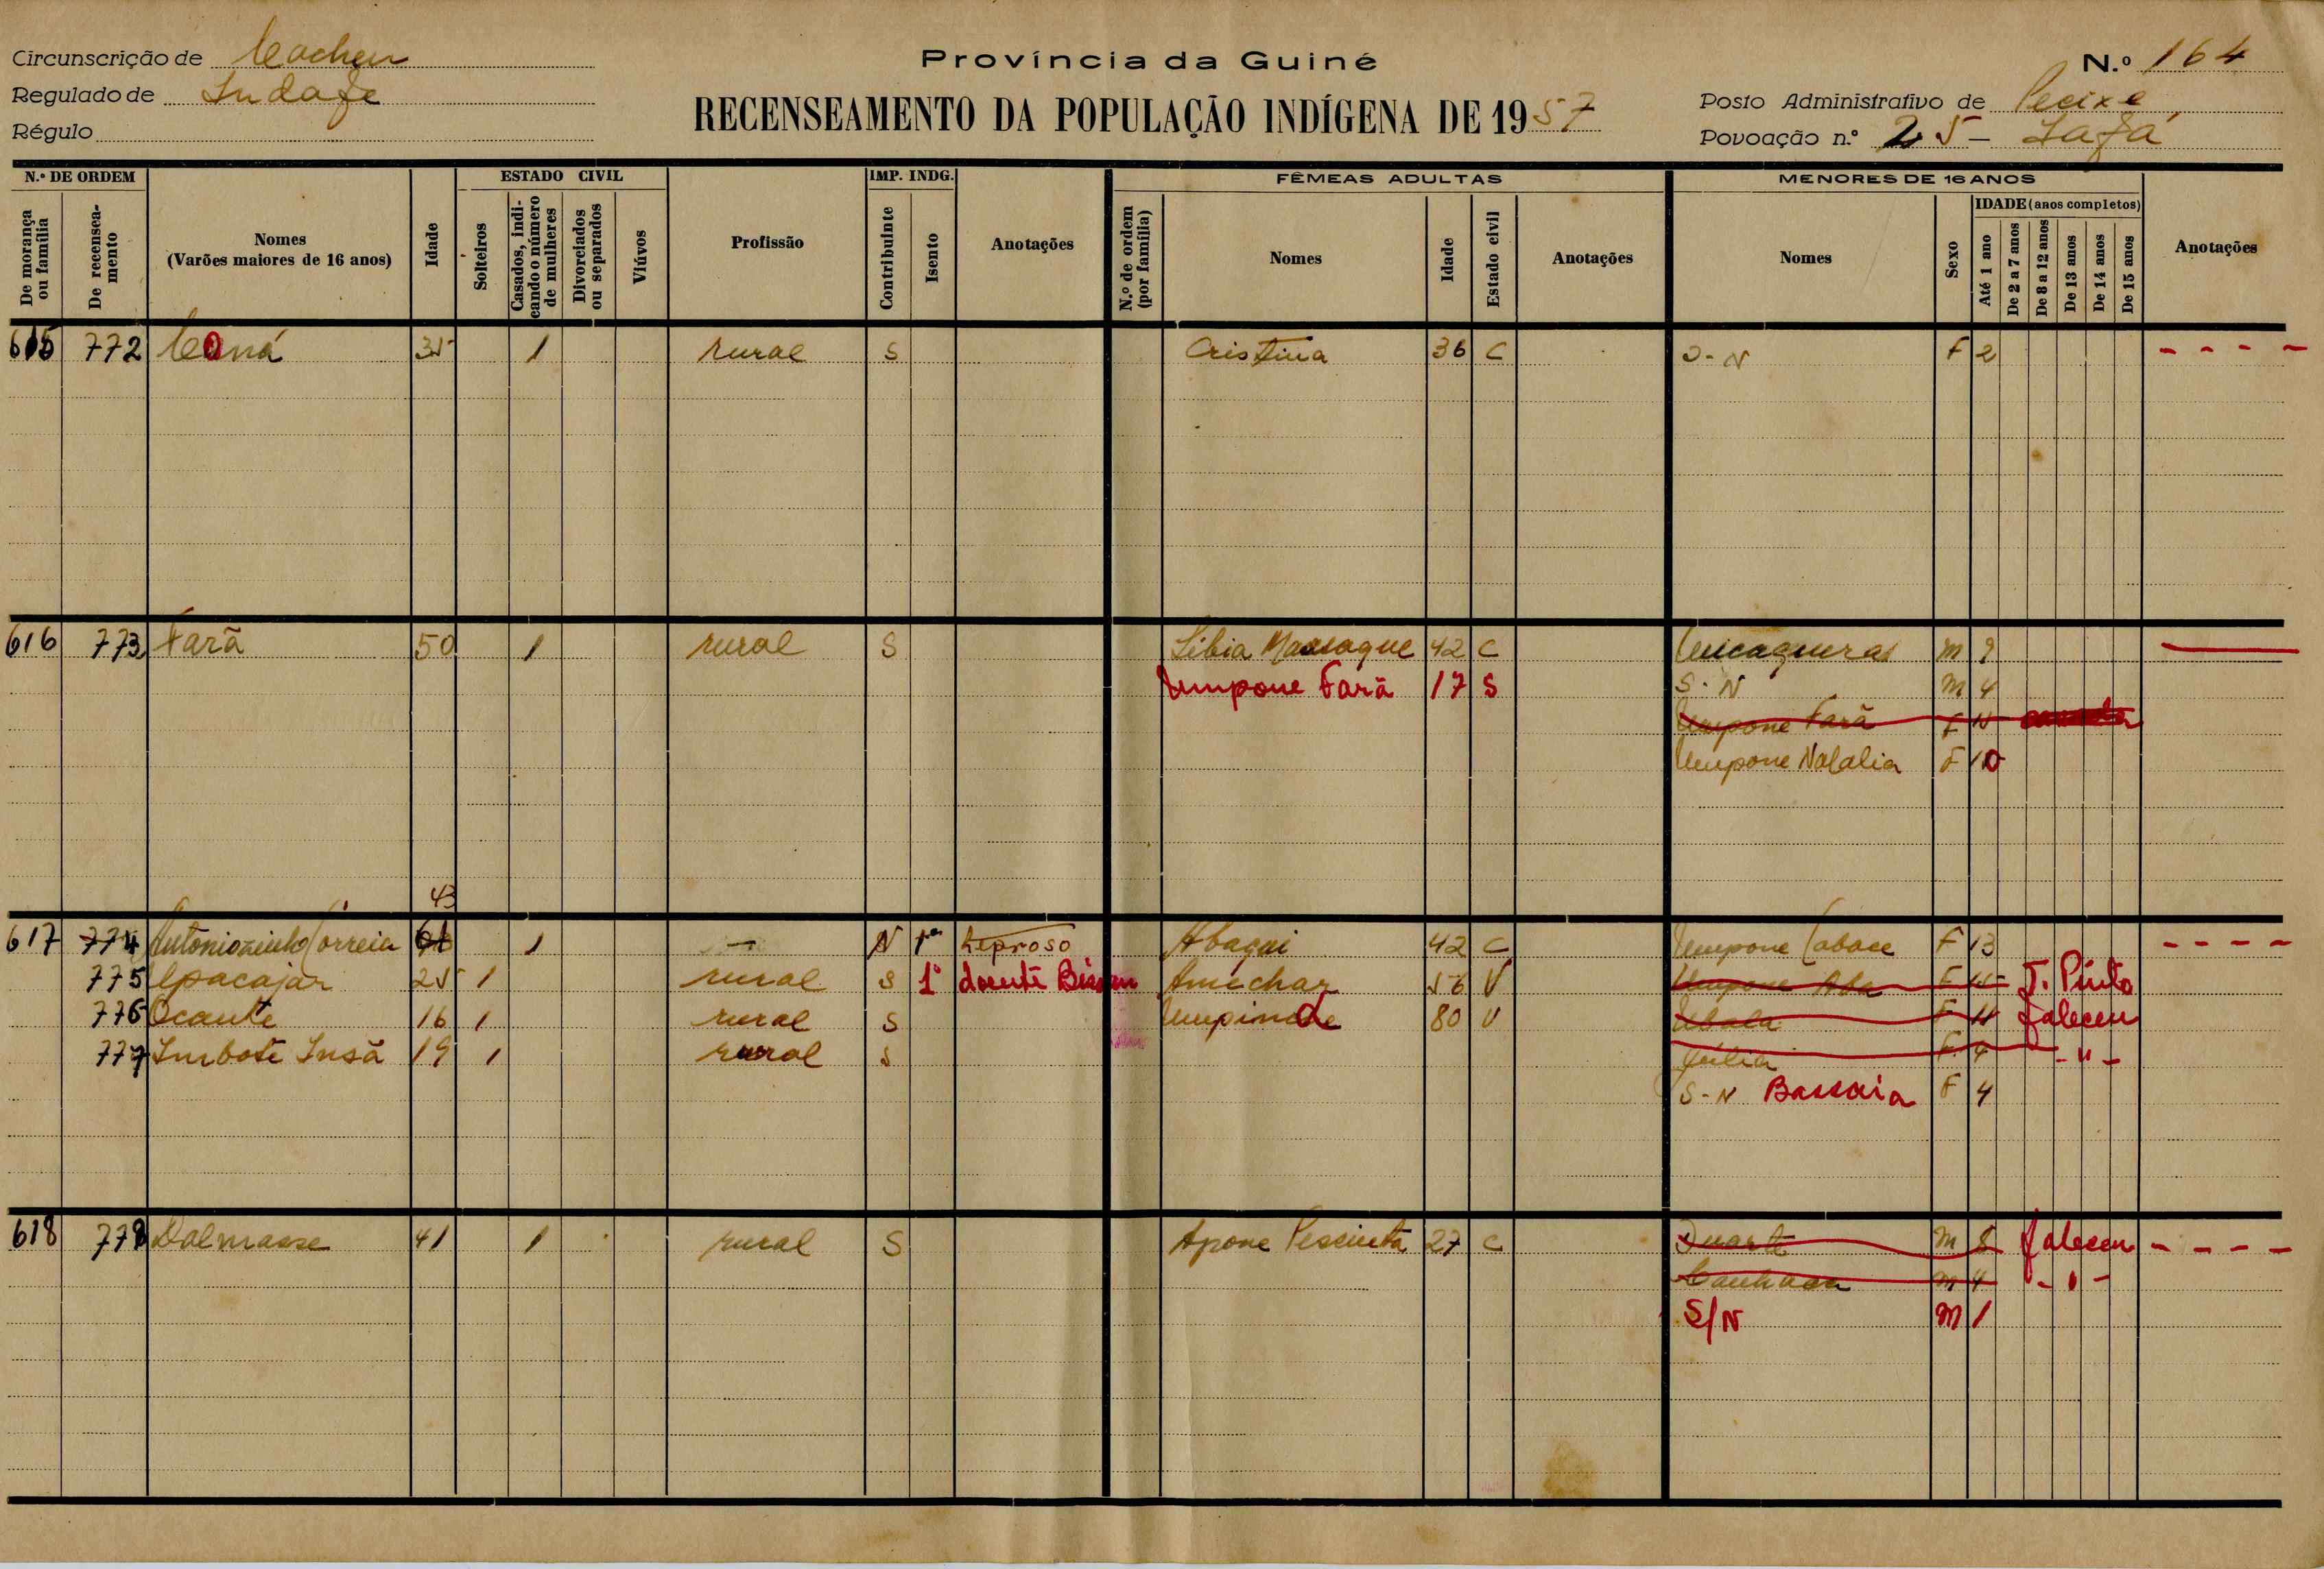 Província da Guiné
N.º 164
Circunscrição de Cacheu
Regulado de
Régulo
RECENSEAMENTO DA POPULAÇÃO INDÍGENA DE 1957
Posto Administrativo de Pecixe
Povoação n.º 25 -
N.º DE ORDEM
De morança ou família
De recenseamento
Nomes
(Varões maiores de 16 anos)
Idade
ESTADO CIVIL
Solteiros
Casados, indicando o número de mulheres
Divorciados ou separados
Viúvos
Profissão
IMP. INDG.
Contribuinte
Isento
Anotações
FÊMEAS ADULTAS
N.º de ordem (por família)
Nomes
Idade
Estado civil
Anotações
MENORES DE 16 ANOS
Nomes
Sexo
IDADE (anos completos)
Até 1 ano
De 2 a 7 anos
De 8 a 12 anos
De 13 anos
De 14 anos
De 15 anos
Anotações
615 772 35 1 rural S Cristina 36 C F 2 - - - -
616 773 Farã 50 1 rural S Libia 42 C M 9
Umpone Farã 17 S S-N M 4
Umpone Farã F
Umpone Natalia F 10
43
617 774 Antoniozinho Correia 1 - N Leproso Abaqui 42 C Umpone F 13 - - - -
775 Upacajar 25 1 rural S 1º doente Amechar 56 V Umpone Aba F J. Pinto
776 Ocante 16 1 rural S 80 V Ubala F 11 faleceu
777 Imbote Insã 19 1 rural S Júlia F 4 - " -
S-N Bassaia F 4
618 778 Dalmasse 41 1 rural S Apone 27 C Duarte M 8 faleceu - - - -
M 4 - " -
S/N M 1